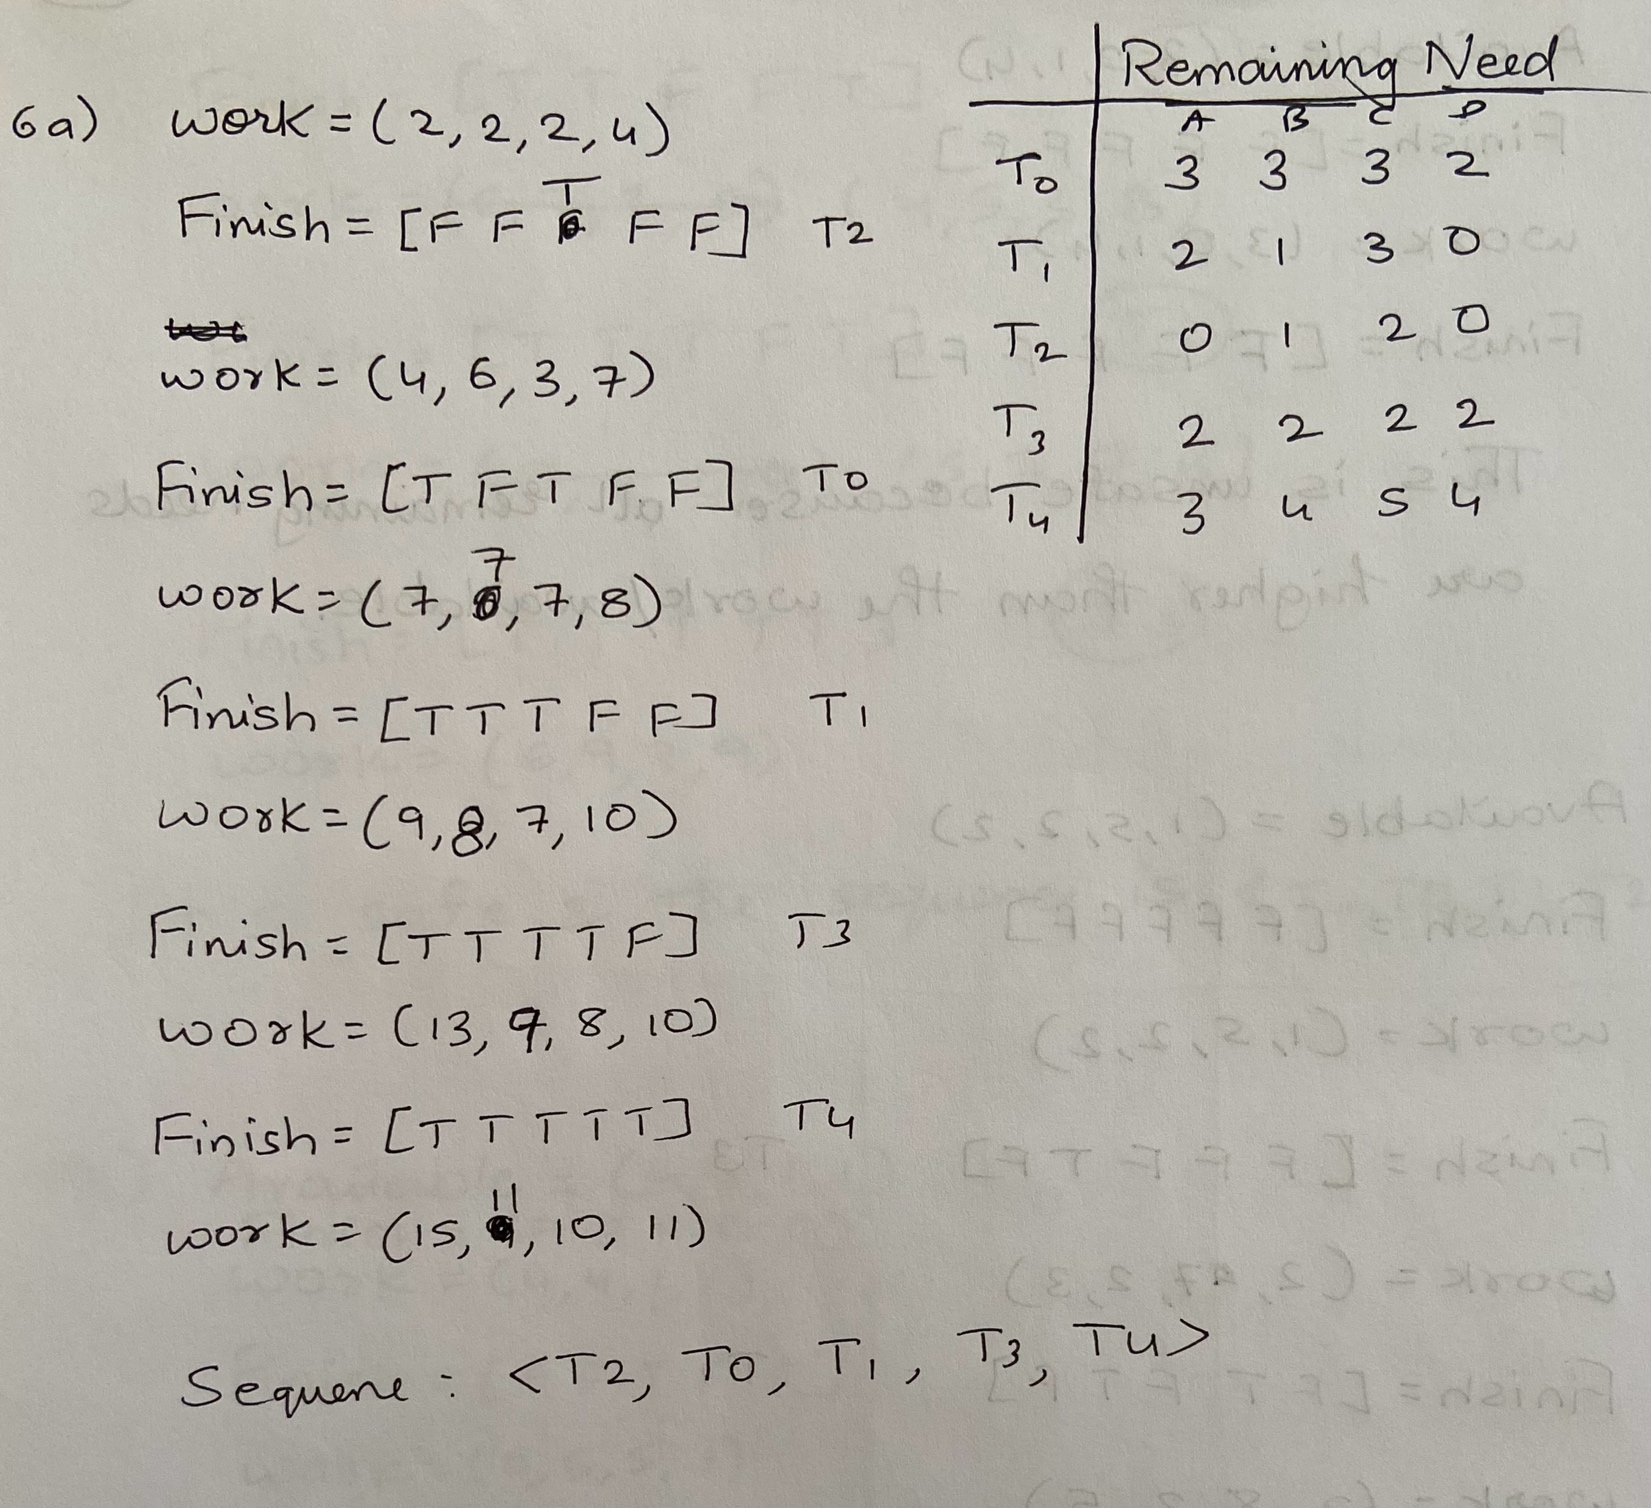 6a) work = (2, 2, 2, 4)
T
Finish = [F F F F] T2
work = (4, 6, 3, 7)
Finish = [T F T F F] T0
7
work = (7, , 7, 8)
Finish = [T T T F F] T1
work = (9, 8, 7, 10)
Finish = [T T T T F] T3
work = (13, 9, 8, 10)
Finish = [T T T T T] T4
11
work = (15, , 10, 11)
Sequene : <T2, T0, T1, T3, T4>
Remaining Need
A B C D
T0 3 3 3 2
T1 2 1 3 0
T2 0 1 2 0
T3 2 2 2 2
T4 3 4 5 4